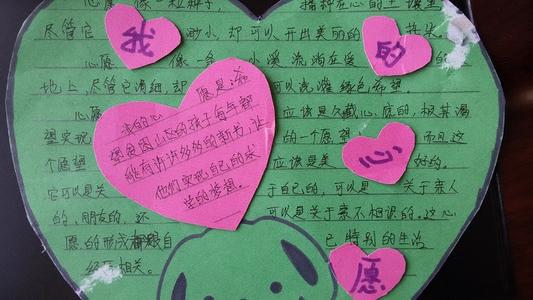 心愿 像一粒种子， 播种在心的土壤里
我 的
尽管它 渺小，却可以开出美丽的 花朵。
心愿 像一条 小溪，流淌在爱 的
地上，尽管它潺细，却 可以浇灌绿色希望。
心愿 应该是久藏心底的，极其渴
望实现 的一个愿望 而且这
个愿望 应该是美 好的。
心
它可以是关 于自己的，可以是 关于亲人
的，朋友的，还 可以是关于素不相识的。这心
愿的形成都跟自 己特别的生活
经历相关。
愿
我的心 愿是：希
望贫困山区的孩子每年都
能有许许多多的新书，让
他们实现自己的求
学的梦想。